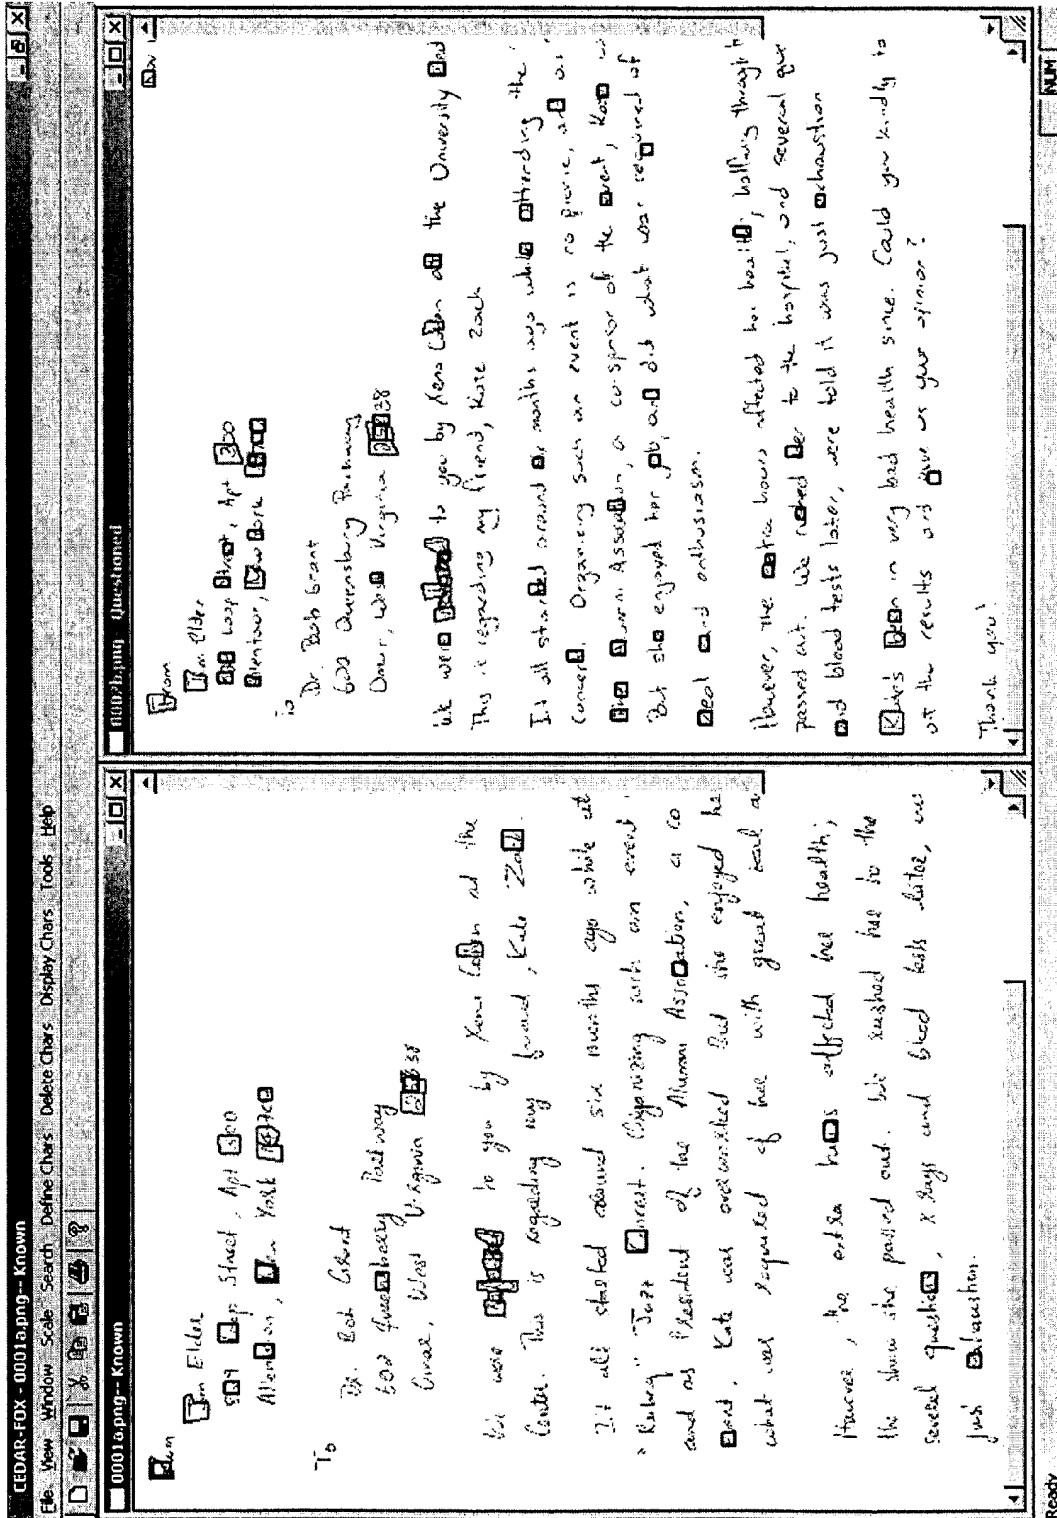 CEDAR-FOX - 0001a.png-- Known
File View Window Scale Search Define Chars Delete Chars Display Chars Tools Help
0001a.png-- Known
From
Jim Elder
829 Loop Street, Apt 300
Allentown, New York 14707
To
Dr. Bob Grant
602 Queensberry Parkway
Omar, West Virginia 25638
We were referred to you by Xena Cohen at the
Center. This is regarding my friend, Kate Zack.
It all started around six months ago while att
"Rubeq" Jazz Concert. Organizing such an event
and as President of her Alumni Association, a co
Event, Kate was overworked But she enjoyed he
what was required of her with great zeal a
However, the extra hours affected her health;
the show she passed out. We rushed her to the
several questions, x Rays and blood tests later, we
just exhaustion.
0007b.png Questioned
Nov
From
Jim Elder
829 Loop Street, Apt 300
Allentown, New York 14707
To
Dr. Bob Grant
602 Queensburg Parkway
Omar, West Virginia 25638
We were referred to you by Xena Cohen at the University Med
This is regarding my friend, Kate Zack
It all started around six months ago while attending the
Concert. Organizing such an event is no picnic, and as
Alumni Association, a co-sponsor of the event, Kate w
But she enjoyed her job, and did what was required of
zeal and enthusiasm.
However, the extra hours affected her health; halfway through t
passed out. We rushed her to the hospital, and several que
and blood tests later, were told it was just exhaustion
Kate's been in very bad health since. Could you kindly ta
at the results and give us your opinion?
Thank you!
Ready
NUM